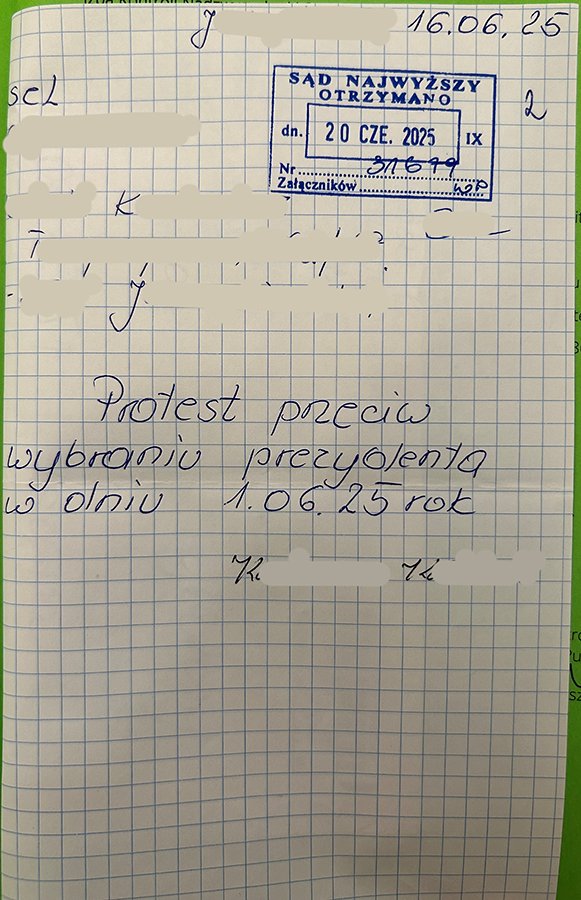 J 16.06.25
SĄD NAJWYŻSZY
OTRZYMANO
dn. 20 CZE. 2025 IX
Nr
Załączników
2
seL
K
T
J.
Protest przeciw
wybraniu prezydenta
w dniu 1.06.25 rok
K K